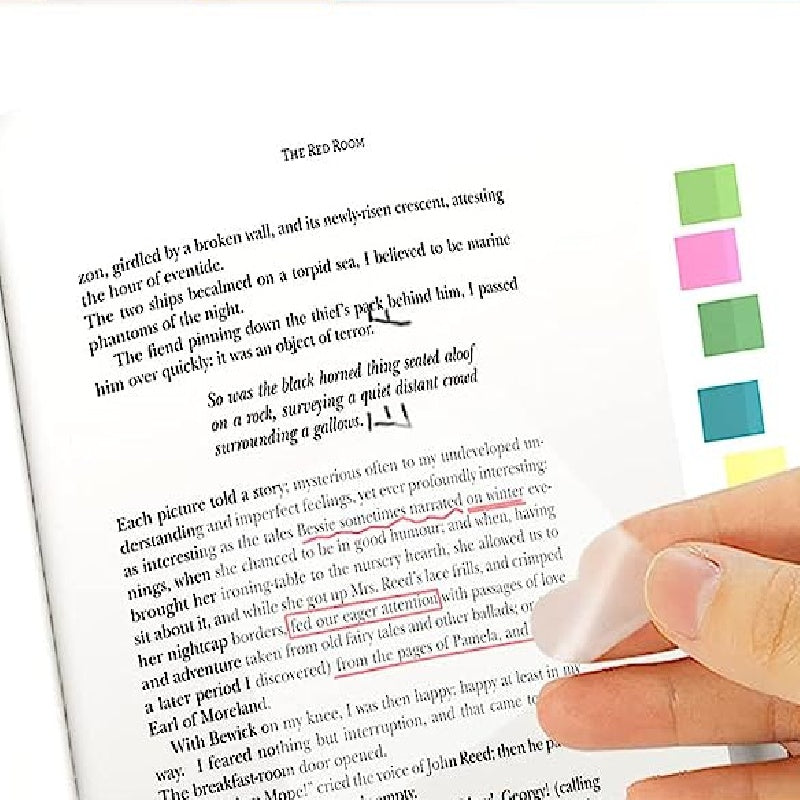 THE RED ROOM
zon, girdled by a broken wall, and its newly-risen crescent, attesting
the hour of eventide.
The two ships becalmed on a torpid sea, I believed to be marine
phantoms of the night.
The fiend pinning down the thief's pack behind him, I passed
him over quickly: it was an object of terror.
So was the black horned thing seated aloof
on a rock, surveying a quiet distant crowd
surrounding a gallows.
Each picture told a story; mysterious often to my undeveloped un-
derstanding and imperfect feelings, yet ever profoundly interesting:
as interesting as the tales Bessie sometimes narrated on winter eve-
nings, when she chanced to be in good humour; and when, having
brought her ironing-table to the nursery hearth, she allowed us to
sit about it, and while she got up Mrs. Reed's lace frills, and crimped
her nightcap borders, fed our eager attention with passages of love
and adventure taken from old fairy tales and other ballads; or
a later period I discovered) from the pages of Pamela, and
Earl of Moreland.
With Bewick on my knee, I was then happy: happy at least in my
way. I feared nothing but interruption, and that came
The breakfast-room door opened.
Mope!" cried the voice of John Reed; then he
empty.
Georgy! (calling